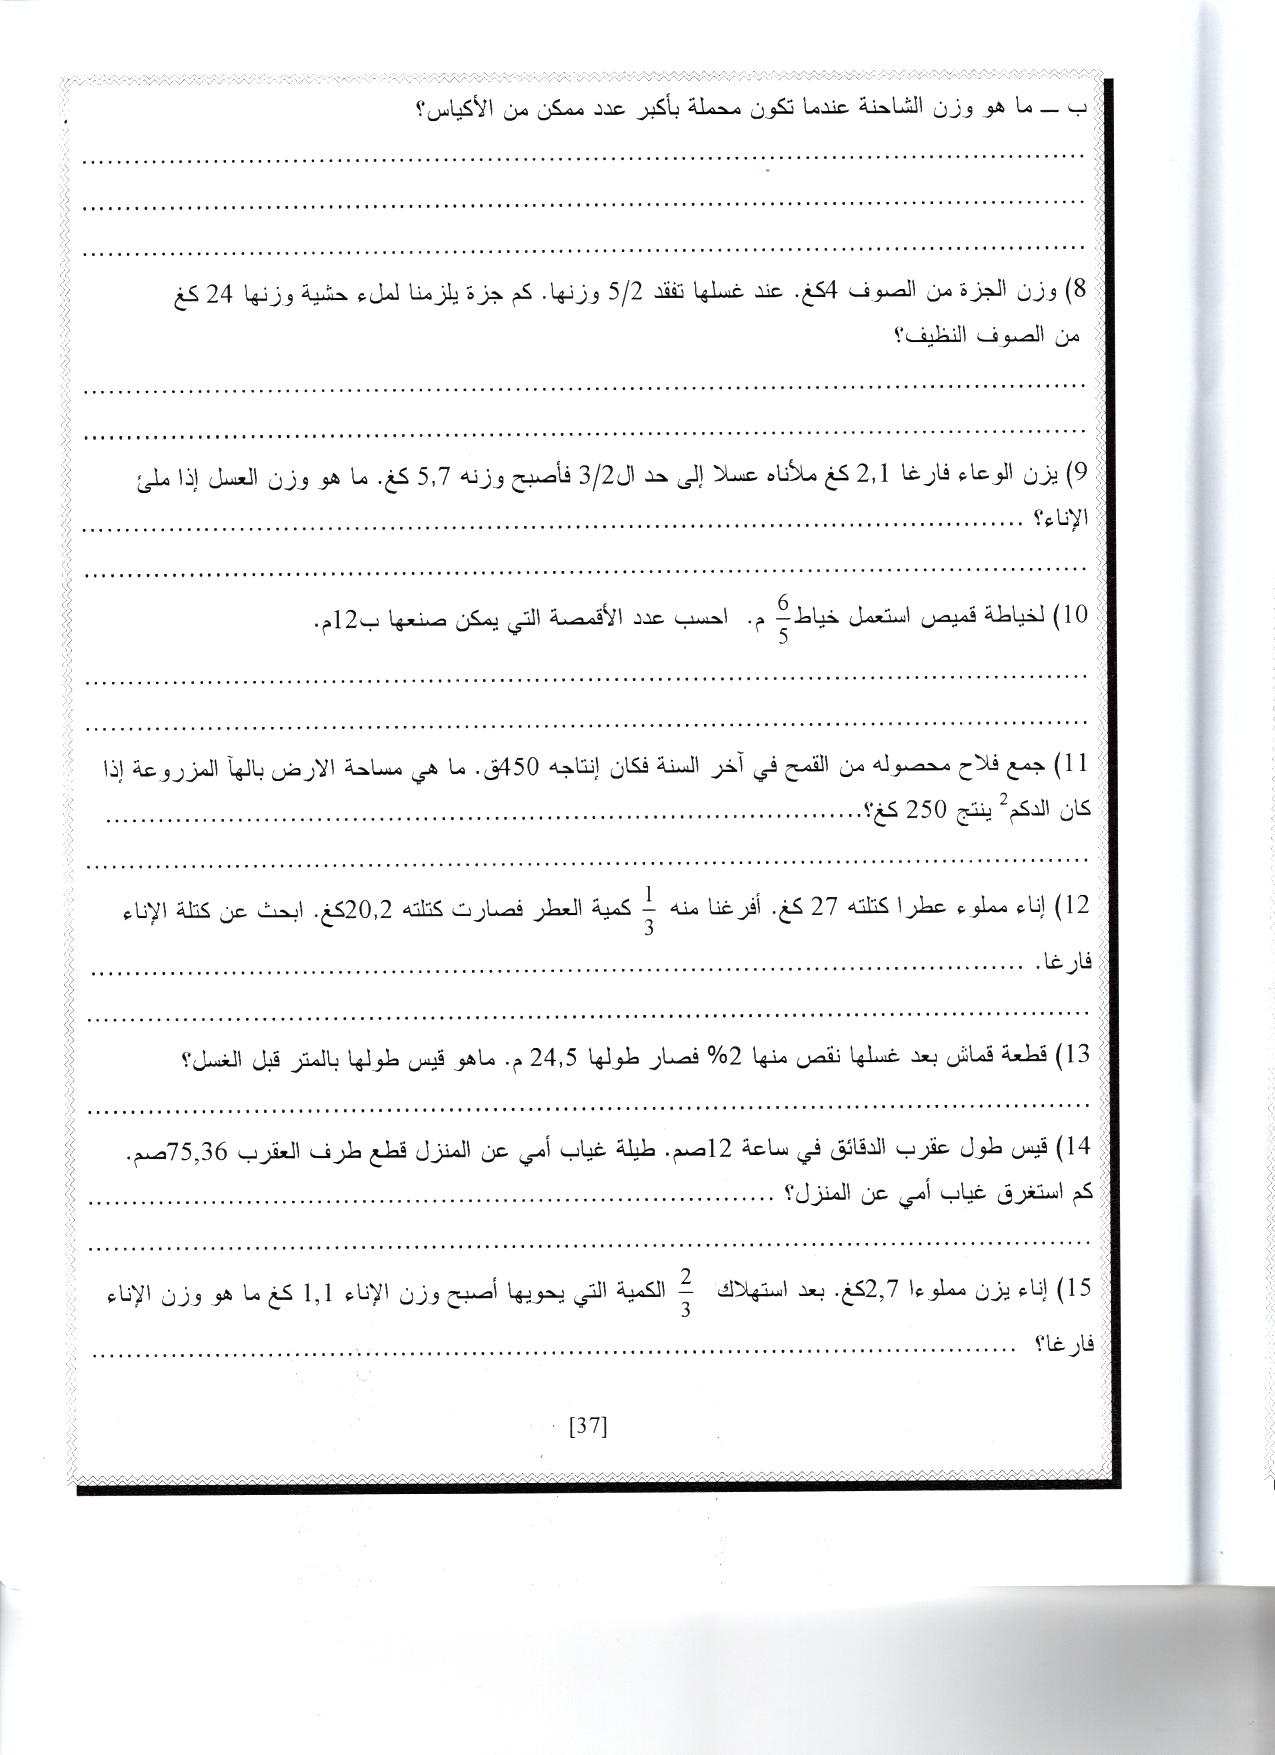 ب ــ ما هو وزن الشاحنة عندما تكون محملة بأكبر عدد ممكن من الأكياس؟
8) وزن الجزة من الصوف 4كغ. عند غسلها تفقد 5/2 وزنها. كم جزة يلزمنا لملء حشية وزنها 24 كغ
من الصوف النظيف؟
9) يزن الوعاء فارغا 2,1 كغ ملأناه عسلا إلى حد ال3/2 فأصبح وزنه 5,7 كغ. ما هو وزن العسل إذا ملئ
الإناء؟
10) لخياطة قميص استعمل خياط 6/5 م. احسب عدد الأقمصة التي يمكن صنعها ب12م.
11) جمع فلاح محصوله من القمح في آخر السنة فكان إنتاجه 450ق. ما هي مساحة الارض بالهآ المزروعة إذا
كان الدكم² ينتج 250 كغ؟
12) إناء مملوء عطرا كتلته 27 كغ. أفرغنا منه 1/3 كمية العطر فصارت كتلته 20,2كغ. ابحث عن كتلة الإناء
فارغا.
13) قطعة قماش بعد غسلها نقص منها 2% فصار طولها 24,5 م. ماهو قيس طولها بالمتر قبل الغسل؟
14) قيس طول عقرب الدقائق في ساعة 12صم. طيلة غياب أمي عن المنزل قطع طرف العقرب 75,36صم.
كم استغرق غياب أمي عن المنزل؟
15) إناء يزن مملوءا 2,7كغ. بعد استهلاك 2/3 الكمية التي يحويها أصبح وزن الإناء 1,1 كغ ما هو وزن الإناء
فارغا؟
[37]